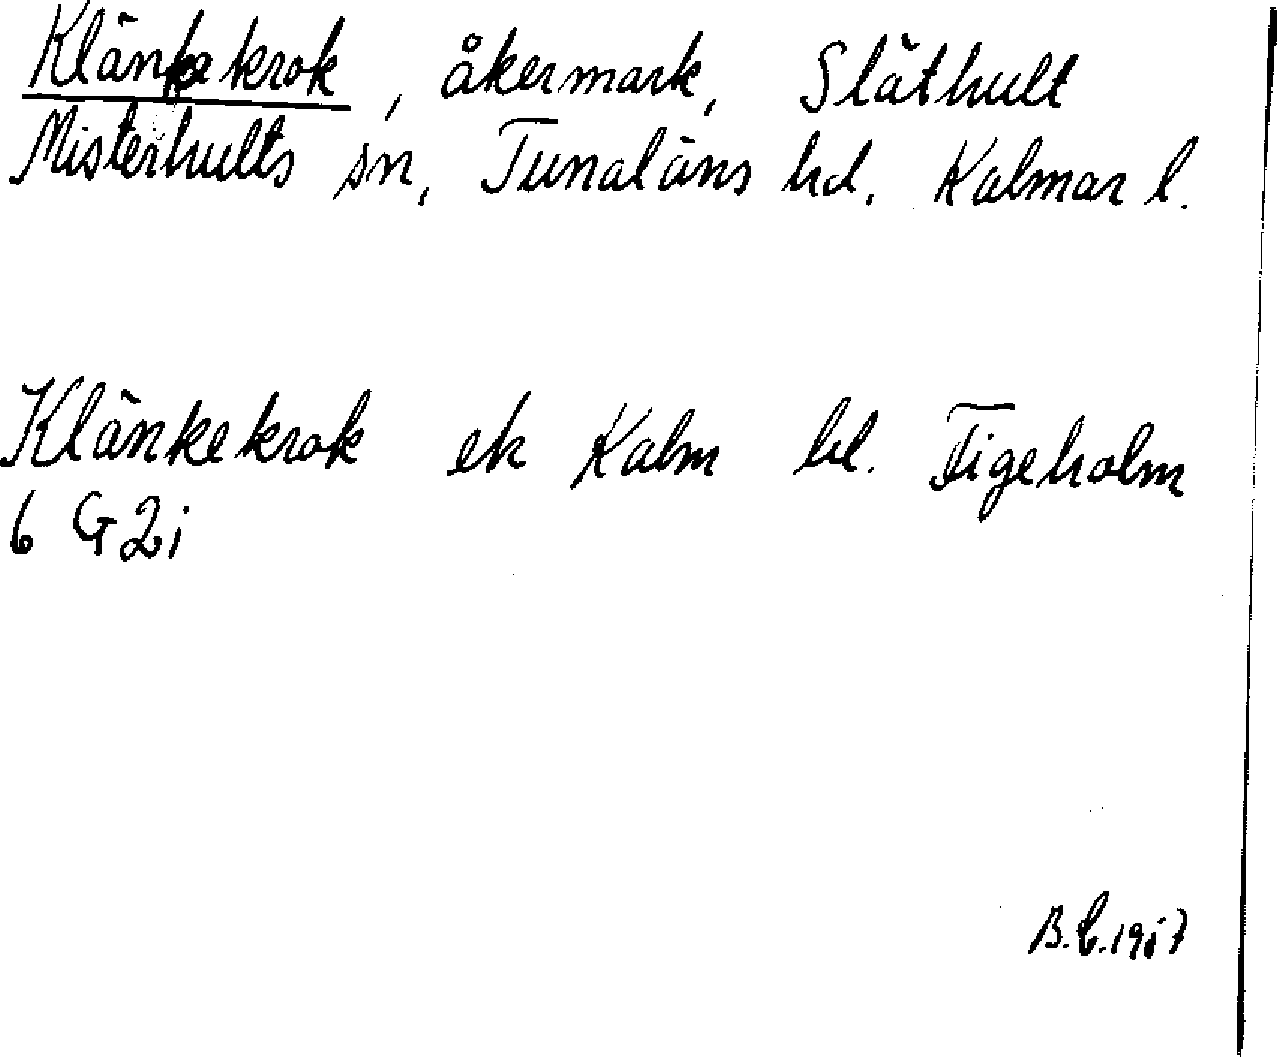 Klänkekrok, åkermark, Släthult
Misterhults sn, Tunaläns hd. Kalmar l.
Klänkekrok ek Kalm bl. Figeholm
6 G2i